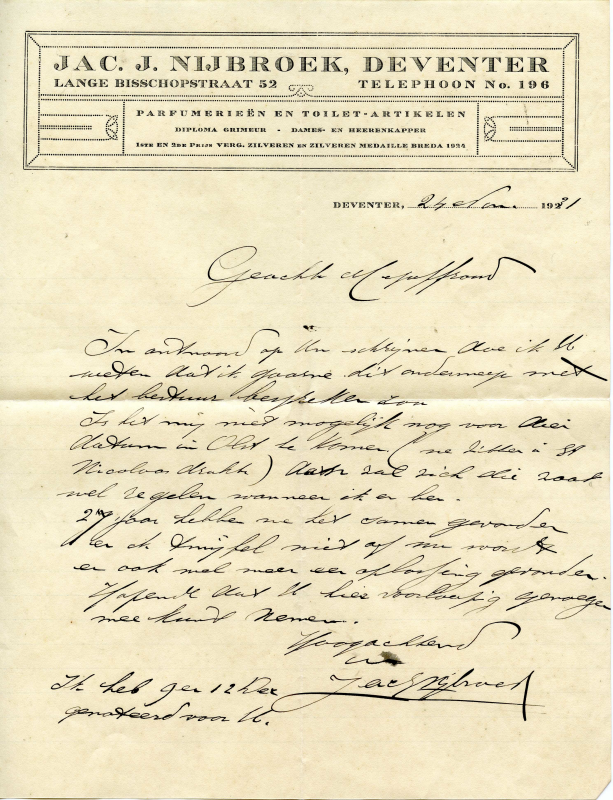 JAC. J. NIJBROEK, DEVENTER
LANGE BISSCHOPSTRAAT 52 TELEPHOON No. 196
PARFUMERIEËN EN TOILET-ARTIKELEN
DIPLOMA GRIMEUR - DAMES- EN HEERENKAPPER
1STE EN 2DE PRIJS VERG. ZILVEREN EN ZILVEREN MEDAILLE BREDA 1924
DEVENTER, 24 Nov. 1931
Geachte Mejuffrouw
In antwoord op Uw schrijven doe ik U
weten dat ik gaarne dit onderwerp met
het bestuur bespreken zou
Is het mij niet mogelijk nog voor die
datum in Olst te komen (we zitten in St
Nicolaas drukte) dan zal zich die zaak
wel regelen wanneer ik er ben.
27 jaar hebben we het samen gevonden
en ik twijfel niet of nu wordt
er ook wel weer een oplossing gevonden.
Hopende dat U hier voorloopig genoegen
mee kunt nemen.
Hoogachtend
Jac J Nijbroek
Ik heb 9 en 12 Dec
genoteerd voor U.